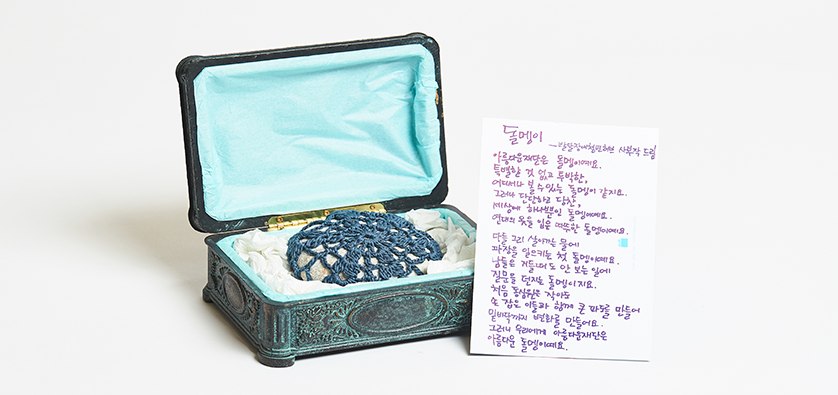 돌멩이
-발달장애청년허브 사부작 드림
아름다움재단은 돌멩이예요.
특별할 것 없고 투박한,
어디에나 볼 수 있는 돌멩이 같지요.
그러나 단단하고 당찬,
세상에 하나뿐인 돌멩이예요.
연대의 옷을 입은 따뜻한 돌멩이예요.
다들 그리 살아가는 물에
파장을 일으키는 첫 돌멩이예요.
남들은 거들떠도 안 보는 일에
질문을 던지는 돌멩이지요.
처음 동심원은 작아도
손 잡은 이들과 함께 큰 파동을 만들어
밑바닥까지 변화를 만들어요.
그러니 우리에게 아름다움재단은
아름다운 돌멩이예요.